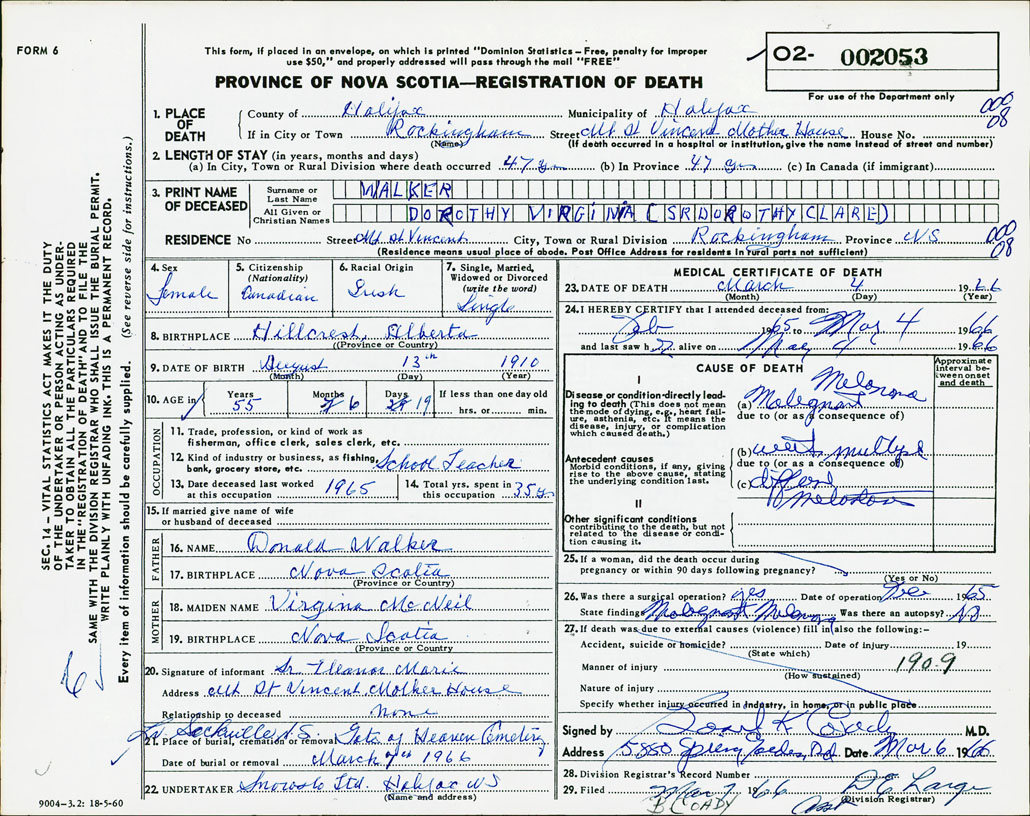 FORM 6
This form, if placed in an envelope, on which is printed "Dominion Statistics – Free, penalty for improper
use $50," and properly addressed will pass through the mail "FREE"
PROVINCE OF NOVA SCOTIA—REGISTRATION OF DEATH
02- 002053
For use of the Department only
1. PLACE OF DEATH
County of Halifax Municipality of Halifax 000
If in City or Town Rockingham Street Mt St Vincent Mother House House No. 08
(Name) (If death occurred in a hospital or institution, give the name instead of street and number)
2. LENGTH OF STAY (in years, months and days)
(a) In City, Town or Rural Division where death occurred 47 yrs (b) In Province 47 yrs (c) In Canada (if immigrant)
3. PRINT NAME OF DECEASED
Surname or Last Name WALKER
All Given or Christian Names DOROTHY VIRGINIA (SR DOROTHY CLARE)
RESIDENCE No Street Mt St Vincent City, Town or Rural Division Rockingham Province NS 000
(Residence means usual place of abode. Post Office Address for residents in rural parts not sufficient) 08
4. Sex Female
5. Citizenship (Nationality) Canadian
6. Racial Origin Irish
7. Single, Married, Widowed or Divorced (write the word) Single
8. BIRTHPLACE Hillcrest, Alberta
(Province or Country)
9. DATE OF BIRTH August 13th 1910
(Month) (Day) (Year)
10. AGE in Years 55 Months 6 Days 19 If less than one day old
hrs. or min.
OCCUPATION
11. Trade, profession, or kind of work as
fisherman, office clerk, sales clerk, etc.
12. Kind of industry or business, as fishing,
bank, grocery store, etc. School Teacher
13. Date deceased last worked
at this occupation 1965
14. Total yrs. spent in
this occupation 35 yrs
15. If married give name of wife
or husband of deceased
FATHER
16. NAME Donald Walker
17. BIRTHPLACE Nova Scotia
(Province or Country)
MOTHER
18. MAIDEN NAME Virginia McNeil
19. BIRTHPLACE Nova Scotia
(Province or Country)
20. Signature of informant Sr Eleanor Marie
Address Mt St Vincent Mother House
Relationship to deceased None
Sackville N.S.
21. Place of burial, cremation or removal Gate of Heaven Cemetery
Date of burial or removal March 7th 1966
22. UNDERTAKER Snows Ltd. Halifax NS
(Name and address)
MEDICAL CERTIFICATE OF DEATH
23. DATE OF DEATH March 4 1966
(Month) (Day)
24. I HEREBY CERTIFY that I attended deceased from:
Feb 1965 to Mar 4 1966
and last saw h alive on Mar 4 1966
CAUSE OF DEATH
Approximate interval between onset and death
I
Disease or condition directly leading to death (This does not mean
the mode of dying, e.g., heart failure, asthenia, etc. It means the
disease, injury, or complication
which caused death.)
(a) Malignant Melanoma
due to (or as a consequence of)
Antecedent causes
Morbid conditions, if any, giving
rise to the above cause, stating
the underlying condition last.
(b) with multiple
due to (or as a consequence of)
(c)
II
Other significant conditions
contributing to the death, but not
related to the disease or condition causing it.
25. If a woman, did the death occur during
pregnancy or within 90 days following pregnancy?
(Yes or No)
26. Was there a surgical operation? yes Date of operation 1965
State findings Malignant Melanoma Was there an autopsy? No
27. If death was due to external causes (violence) fill in also the following:–
Accident, suicide or homicide? Date of injury 19
(State which)
Manner of injury 1909
(How sustained)
Nature of injury
Specify whether injury occurred in industry, in home, or in public place
Signed by M.D.
Address 5880 Spring Garden Rd Date Mar 6 1966
28. Division Registrar's Record Number
29. Filed Mar 7 1966 D E Large
B COADY Asst (Division Registrar)
SEC. 14 – VITAL STATISTICS ACT MAKES IT THE DUTY
OF THE UNDERTAKER OR PERSON ACTING AS UNDER-
TAKER TO OBTAIN ALL THE PARTICULARS REQUIRED
IN THE "REGISTRATION OF DEATH" AND TO FILE THE
SAME WITH THE DIVISION REGISTRAR WHO SHALL ISSUE THE BURIAL PERMIT.
WRITE PLAINLY WITH UNFADING INK. THIS IS A PERMANENT RECORD.
Every item of information should be carefully supplied. (See reverse side for instructions.)
9004–3.2: 18-5-60